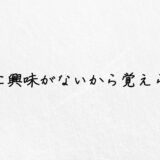 に興味がないから覚えら